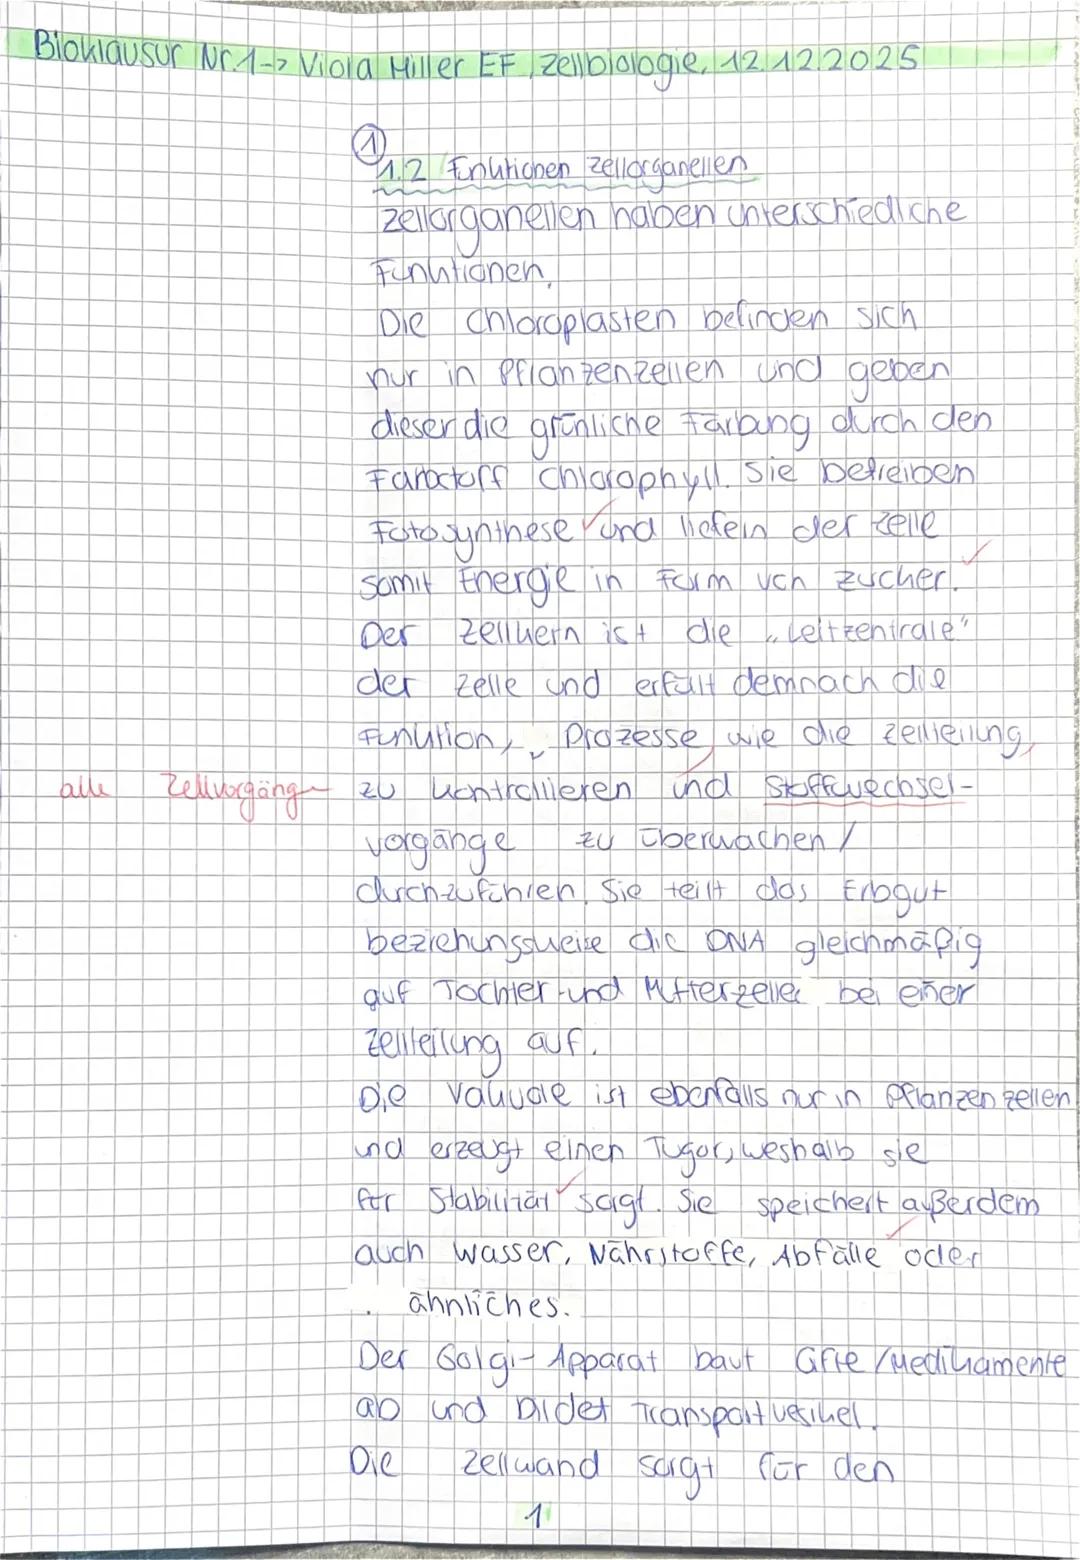 Bioklausur Nr.1-> Viola Miller EF, Zellbiologie, 12.12.2025
1
1.2 Funktionen Zellorganellen
Zellorganellen haben unterschiedliche
Funktionen.
Die Chloroplasten befinden sich
nur in Pflanzenzellen und geben
dieser die grünliche Färbung durch den
Farbstoff Chlorophyll. Sie betreiben
Fotosynthese und liefern der Zelle
somit Energie in Form von Zucker.
Der Zellkern ist die „Leitzentrale"
der Zelle und erfült demnach die
Funktion, Prozesse, wie die Zellteilung,
alle Zellvorgänge zu kontrollieren und Stoffwechsel-
vorgänge zu überwachen /
durchzuführen. Sie teilt das Erbgut
beziehungsweise die DNA gleichmäßig
auf Tochter- und Mutterzelle bei einer
Zellteilung auf.
Die Vakuole ist ebenfalls nur in Pflanzenzellen
und erzeugt einen Tugor, weshalb sie
für Stabilität sorgt. Sie speichert außerdem
auch Wasser, Nährstoffe, Abfälle oder
ähnliches.
Der Golgi-Apparat baut Gifte/Medikamente
ab und bildet Transportvesikel.
Die Zellwand sorgt für den
1